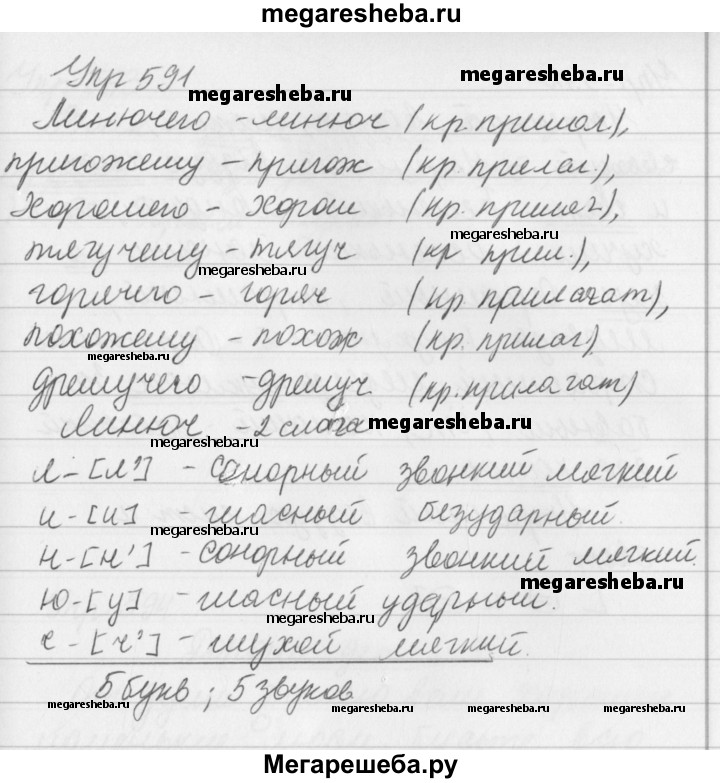 megaresheba.ru
Упр 591
megaresheba.ru
megaresheba.ru
Линючего - линюч (кр. прилаг.),
пригожему - пригож (кр. прилаг.),
Хорошего - хорош (кр. прилаг.),
megaresheba.ru
тягучему - тягуч (кр. прил.),
megaresheba.ru
горячего - горяч (кр. прилагат),
похожему - похож (кр. прилаг),
megaresheba.ru
дремучего - дремуч (кр. прилагат)
Линюч - 2 слога
megaresheba.ru
megaresheba.ru
л - [л'] - сонорный звонкий мягкий
и - [и] - гласный безударный.
megaresheba.ru
н - [н'] - сонорный звонкий мягкий.
megaresheba.ru
ю - [у] - гласный ударный.
megaresheba.ru
ч - [ч'] - глухой мягкий.
5 букв; 5 звуков
megaresheba.ru megaresheba.ru megaresheba.ru
Мегарешеба.ру